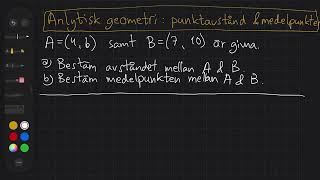 Anlytisk geometri: punktavstånd & medelpunkter
A=(4,6) samt B=(7,10) är givna.
a) Bestäm avståndet mellan A & B.
b) Bestäm medelpunkten mellan A & B.